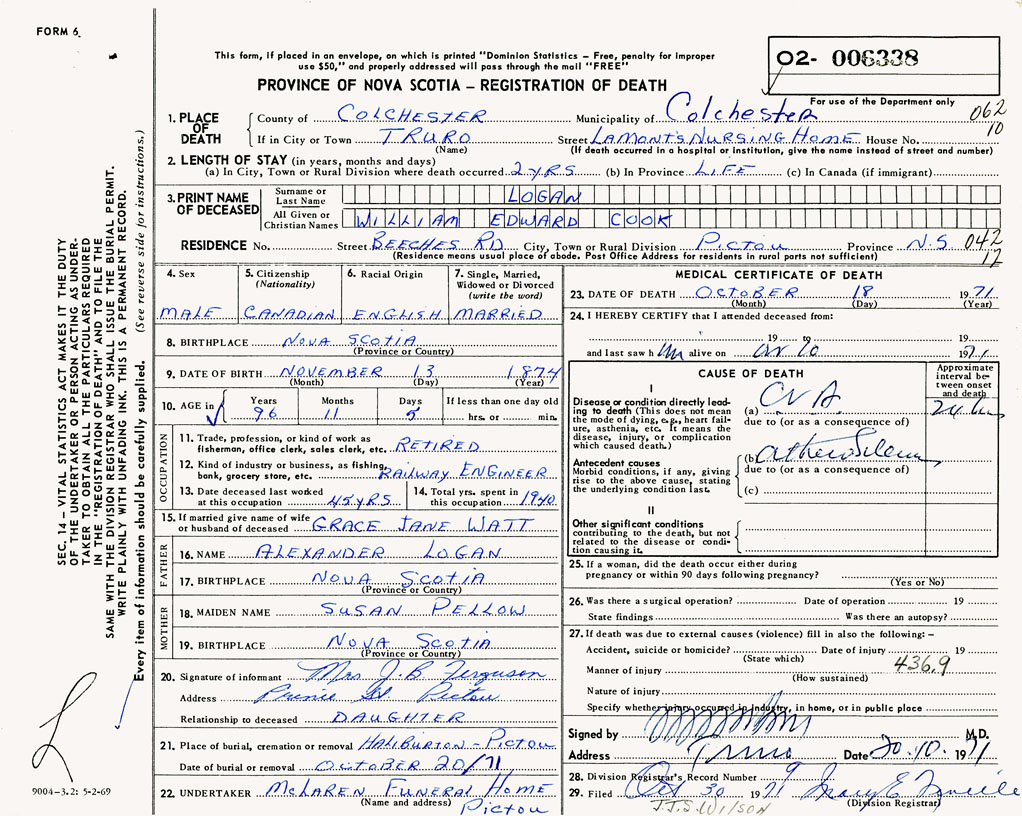 FORM 6.
This form, if placed in an envelope, on which is printed "Dominion Statistics – Free, penalty for improper
use $50," and properly addressed will pass through the mail "FREE"
02- 006338
For use of the Department only
PROVINCE OF NOVA SCOTIA – REGISTRATION OF DEATH
1. PLACE OF DEATH
County of COLCHESTER Municipality of Colchester 062
If in City or Town TRURO Street LAMONT'S NURSING HOME House No. 10
(Name) (If death occurred in a hospital or institution, give the name instead of street and number)
2. LENGTH OF STAY (in years, months and days)
(a) In City, Town or Rural Division where death occurred 2 YRS (b) In Province LIFE (c) In Canada (if immigrant)
3. PRINT NAME OF DECEASED
Surname or Last Name LOGAN
All Given or Christian Names WILLIAM EDWARD COOK
RESIDENCE No. Street BEECHES RD City, Town or Rural Division PICTOU Province N.S. 042
(Residence means usual place of abode. Post Office Address for residents in rural parts not sufficient) 17
4. Sex
MALE
5. Citizenship
(Nationality)
CANADIAN
6. Racial Origin
ENGLISH
7. Single, Married,
Widowed or Divorced
(write the word)
MARRIED
8. BIRTHPLACE NOVA SCOTIA
(Province or Country)
9. DATE OF BIRTH NOVEMBER 13 1874
(Month) (Day) (Year)
10. AGE in
Years Months Days If less than one day old
96 11 5 hrs. or min.
OCCUPATION
11. Trade, profession, or kind of work as
fisherman, office clerk, sales clerk, etc. RETIRED
12. Kind of industry or business, as fishing,
bank, grocery store, etc. RAILWAY ENGINEER
13. Date deceased last worked
at this occupation 45 YRS
14. Total yrs. spent in
this occupation 1940
15. If married give name of wife
or husband of deceased GRACE JANE WATT
FATHER
16. NAME ALEXANDER LOGAN
17. BIRTHPLACE NOVA SCOTIA
(Province or Country)
MOTHER
18. MAIDEN NAME SUSAN PELLOW
19. BIRTHPLACE NOVA SCOTIA
(Province or Country)
20. Signature of informant Mrs J. B. Ferguson
Address St Pictou
Relationship to deceased DAUGHTER
21. Place of burial, cremation or removal HALIBURTON - PICTOU
Date of burial or removal OCTOBER 20/71
22. UNDERTAKER McLAREN FUNERAL HOME
(Name and address) PICTOU
MEDICAL CERTIFICATE OF DEATH
23. DATE OF DEATH OCTOBER 18 1971
(Month) (Day) (Year)
24. I HEREBY CERTIFY that I attended deceased from:
19 to 19
and last saw h im alive on 1971
CAUSE OF DEATH
Approximate
interval be-
tween onset
and death
I
Disease or condition directly lead-
ing to death (This does not mean
the mode of dying, e.g., heart fail-
ure, asthenia, etc. It means the
disease, injury, or complication
which caused death.)
(a) CVA 24 hrs
due to (or as a consequence of)
Antecedent causes
Morbid conditions, if any, giving
rise to the above cause, stating
the underlying condition last.
(b)
due to (or as a consequence of)
(c)
II
Other significant conditions
contributing to the death, but not
related to the disease or condi-
tion causing it.
25. If a woman, did the death occur either during
pregnancy or within 90 days following pregnancy?
(Yes or No)
26. Was there a surgical operation? Date of operation 19
State findings Was there an autopsy?
27. If death was due to external causes (violence) fill in also the following: –
Accident, suicide or homicide? Date of injury 19
(State which)
436.9
Manner of injury
(How sustained)
Nature of injury
Specify whether injury occurred in industry, in home, or in public place
Signed by M.D.
Address Truro Date 20.10.1971
28. Division Registrar's Record Number 9
29. Filed Oct 30 1971
(Division Registrar)
J.J.S. WILSON
SEC. 14 – VITAL STATISTICS ACT MAKES IT THE DUTY
OF THE UNDERTAKER OR PERSON ACTING AS UNDER-
TAKER TO OBTAIN ALL THE PARTICULARS REQUIRED
IN THE "REGISTRATION OF DEATH" AND TO FILE THE
SAME WITH THE DIVISION REGISTRAR WHO SHALL ISSUE THE BURIAL PERMIT.
WRITE PLAINLY WITH UNFADING INK. THIS IS A PERMANENT RECORD.
Every item of information should be carefully supplied. (See reverse side for instructions.)
9004-3.2: 5-2-69